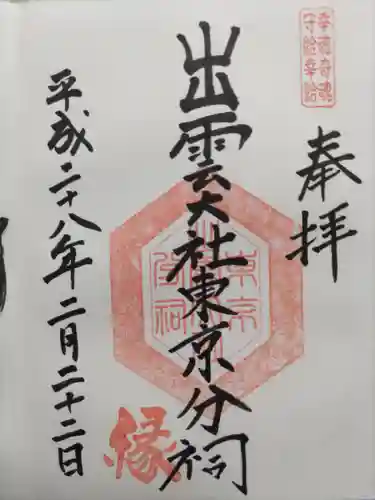 幸魂奇魂
守給幸給
奉拝
出雲大社東京分祠
平成二十八年二月二十二日
縁